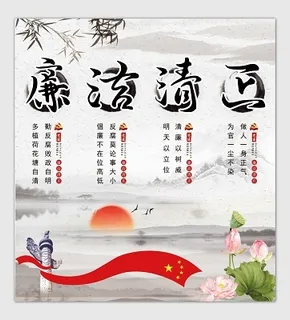 廉洁清正
勤反腐败政自明
多植荷花塘自清
反腐莫论事大小
倡廉不在位高低
清廉以树威
明天以立位
做人一身正气
为官一尘不染